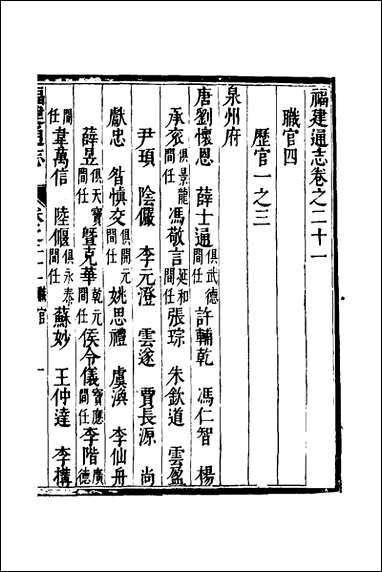 福建通志卷之二十一
職官四
歷官一之三
泉州府
唐劉懷恩 薛士通俱武德間任許輔乾 馮仁智 楊
承衮俱景龍間任馮敬言延和間任張琮 朱欽道 雲盈
尹頊 陰儼 李元澄 雲遂 賈長源 尚
獻忠 昝慎交俱開元間任姚思禮 虞 李仙舟
薛昱俱天寶間任暨克華乾元間任侯令儀寶應間任李階廣德
間任韋萬信 陸偃俱永泰間任蘇妙 王仲達 李構
福建通志 卷之二十一職官 一